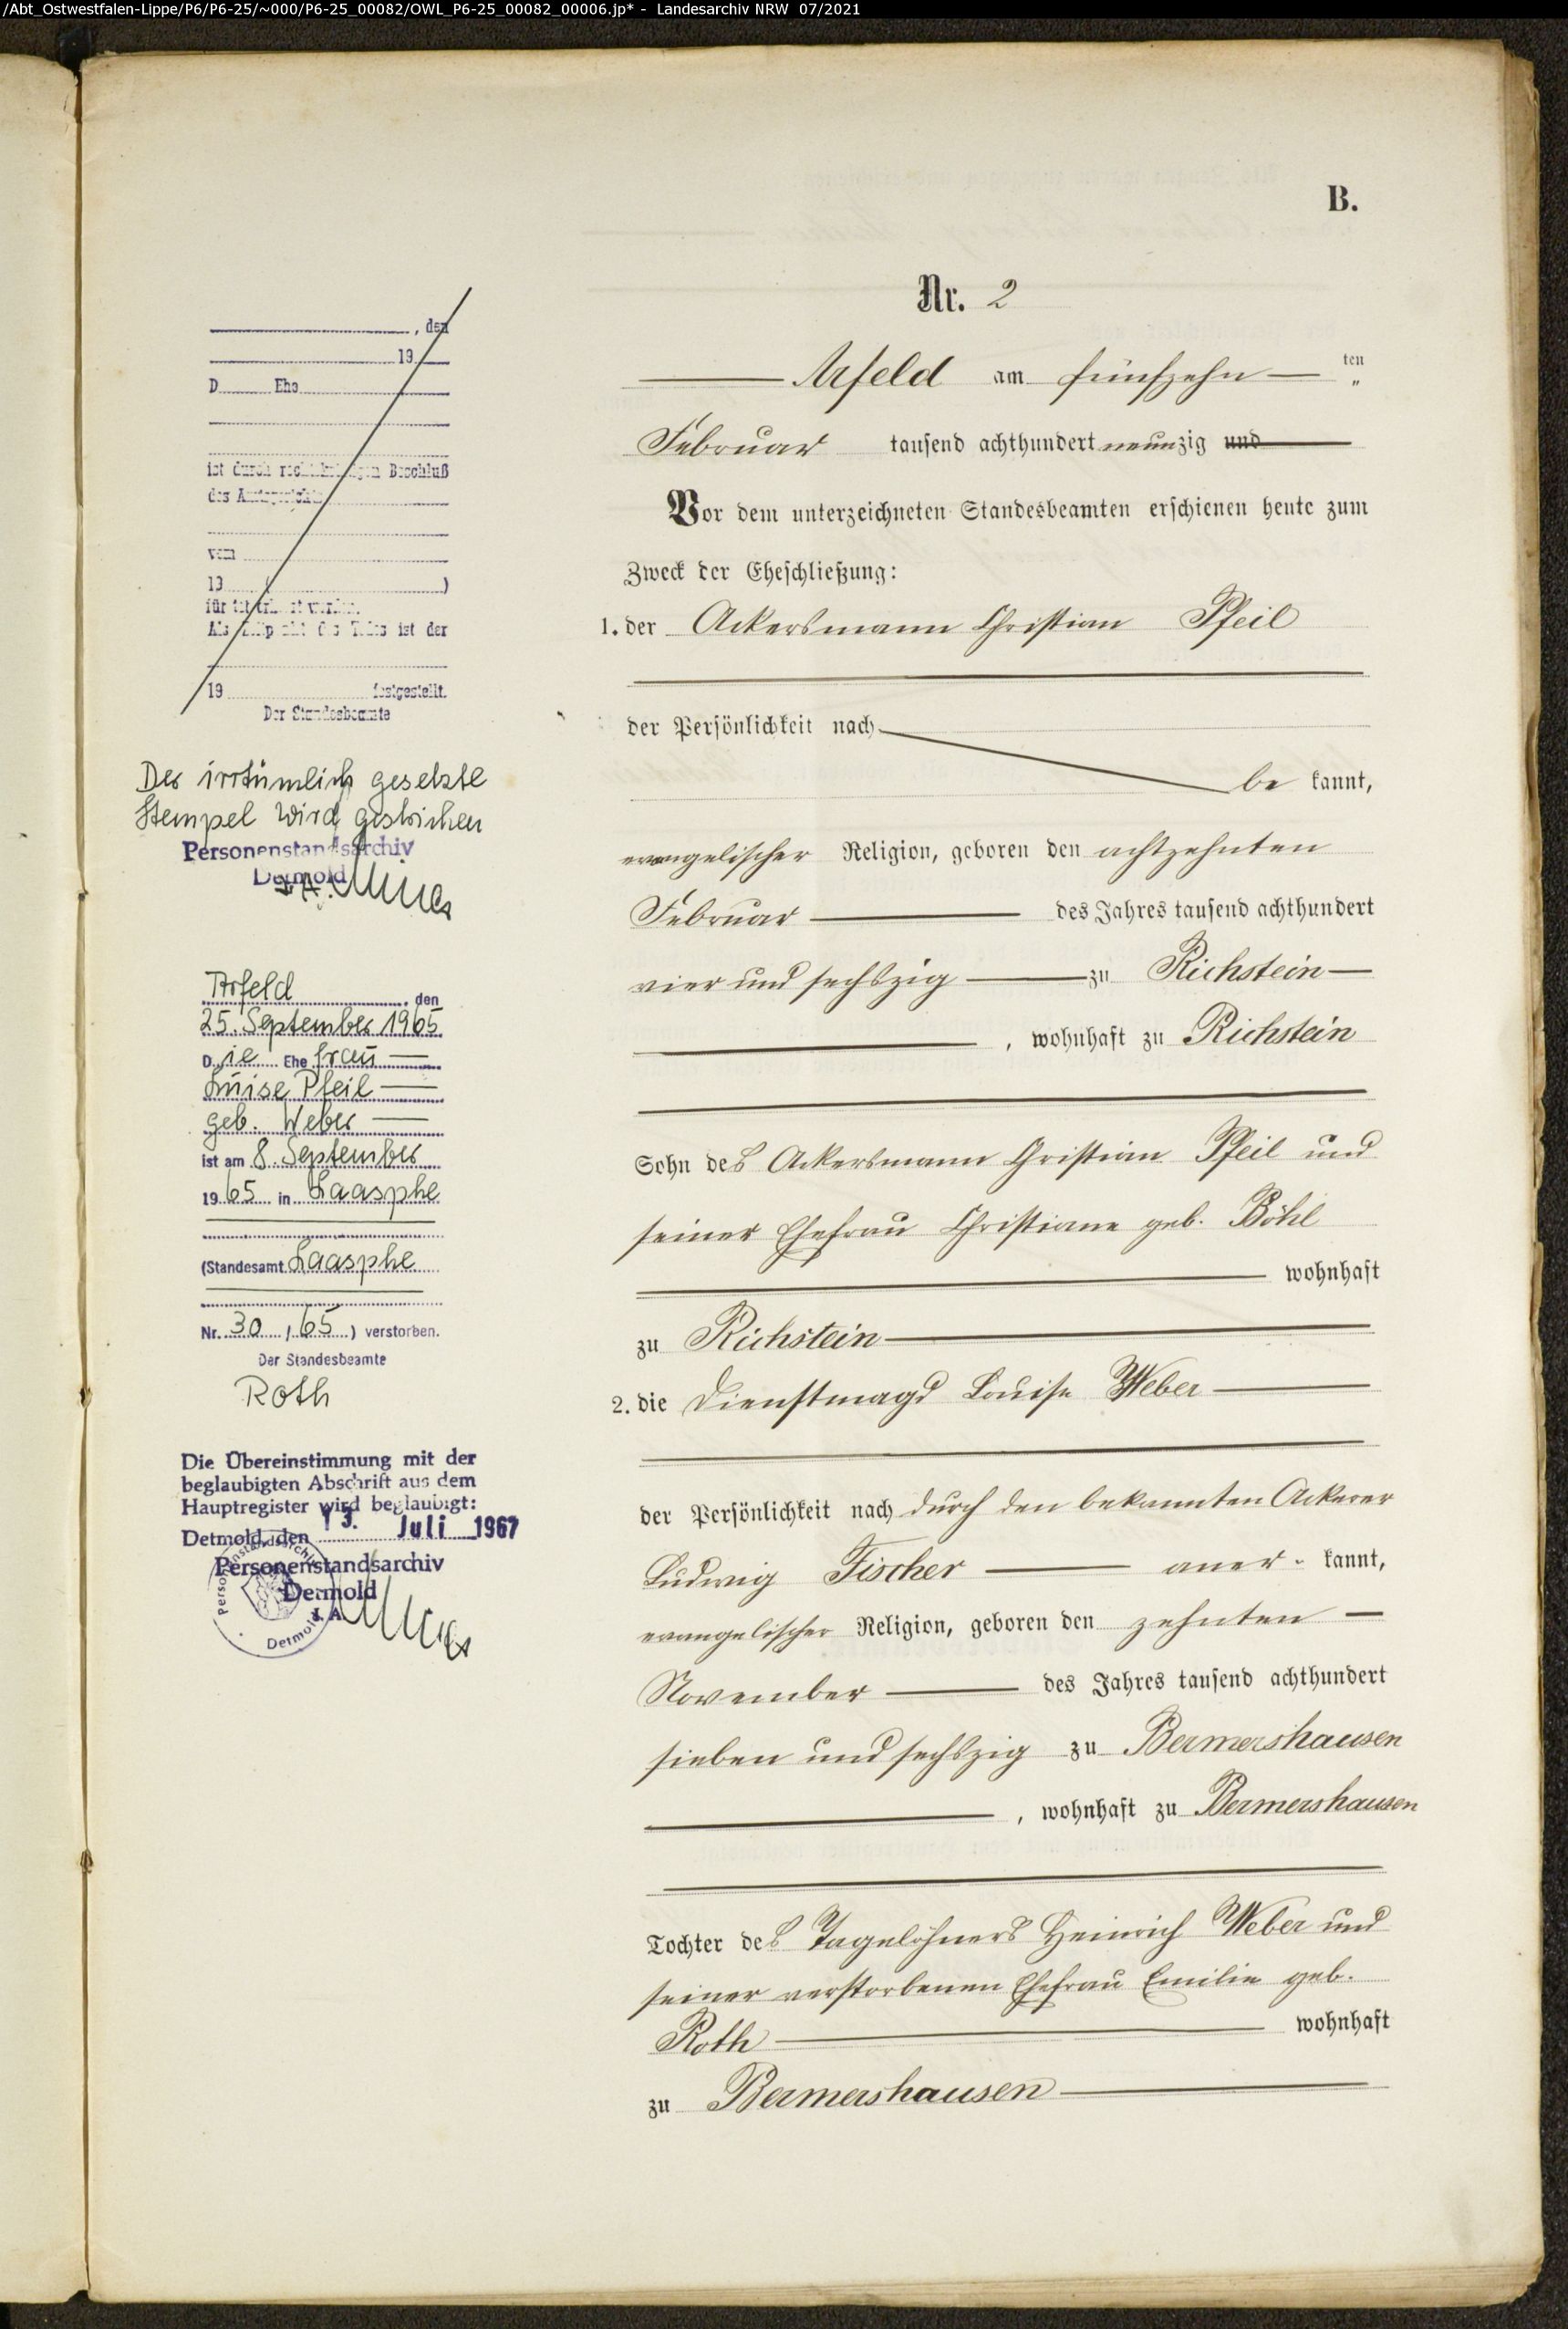 /Abt_Ostwestfalen-Lippe/P6/P6-25/~000/P6-25_00082/OWL_P6-25_00082_00006.jp* - Landesarchiv NRW 07/2021
B.
Nr. 2
Arfeld am fünfzehn ten
Februar tausend achthundert neunzig und
Vor dem unterzeichneten Standesbeamten erschienen heute zum
Zweck der Eheschließung:
1. der Ackersmann Christian Pfeil
der Persönlichkeit nach
be kannt,
evangelischer Religion, geboren den achtzehnten
Februar des Jahres tausend achthundert
vier und sechszig zu Richstein
, wohnhaft zu Richstein
Sohn des Ackersmann Christian Pfeil und
seiner Ehefrau Christiane geb. Böhl
wohnhaft
zu Richstein
2. die Dienstmagd Louise Weber
der Persönlichkeit nach durch den bekannten Ackerer
Ludwig Fischer aner- kannt,
evangelischer Religion, geboren den zehnten
November des Jahres tausend achthundert
sieben und sechszig zu Bermershausen
, wohnhaft zu Bermershausen
Tochter des Tagelöhners Heinrich Weber und
seiner verstorbenen Ehefrau Emilie geb.
Roth wohnhaft
zu Bermershausen
, den
19
D Ehe
ist durch rechtskräftigen Beschluß
des Amtsgerichts
vom
19 ( )
für tot erklärt worden.
Als Zeitpunkt des Todes ist der
19 festgestellt.
Der Standesbeamte
Der irrtümlich gesetzte
Stempel wird gestrichen
Personenstandsarchiv
Detmold
I. A.
Arfeld, den
25. September 1965
Die Ehefrau
Luise Pfeil
geb. Weber
ist am 8. September
1965 in Laasphe
(Standesamt Laasphe
Nr. 30 / 65 ) verstorben.
Der Standesbeamte
Roth
Die Übereinstimmung mit der
beglaubigten Abschrift aus dem
Hauptregister wird beglaubigt:
Detmold, den 13. Juli 1967
Personenstandsarchiv
Detmold
I. A.